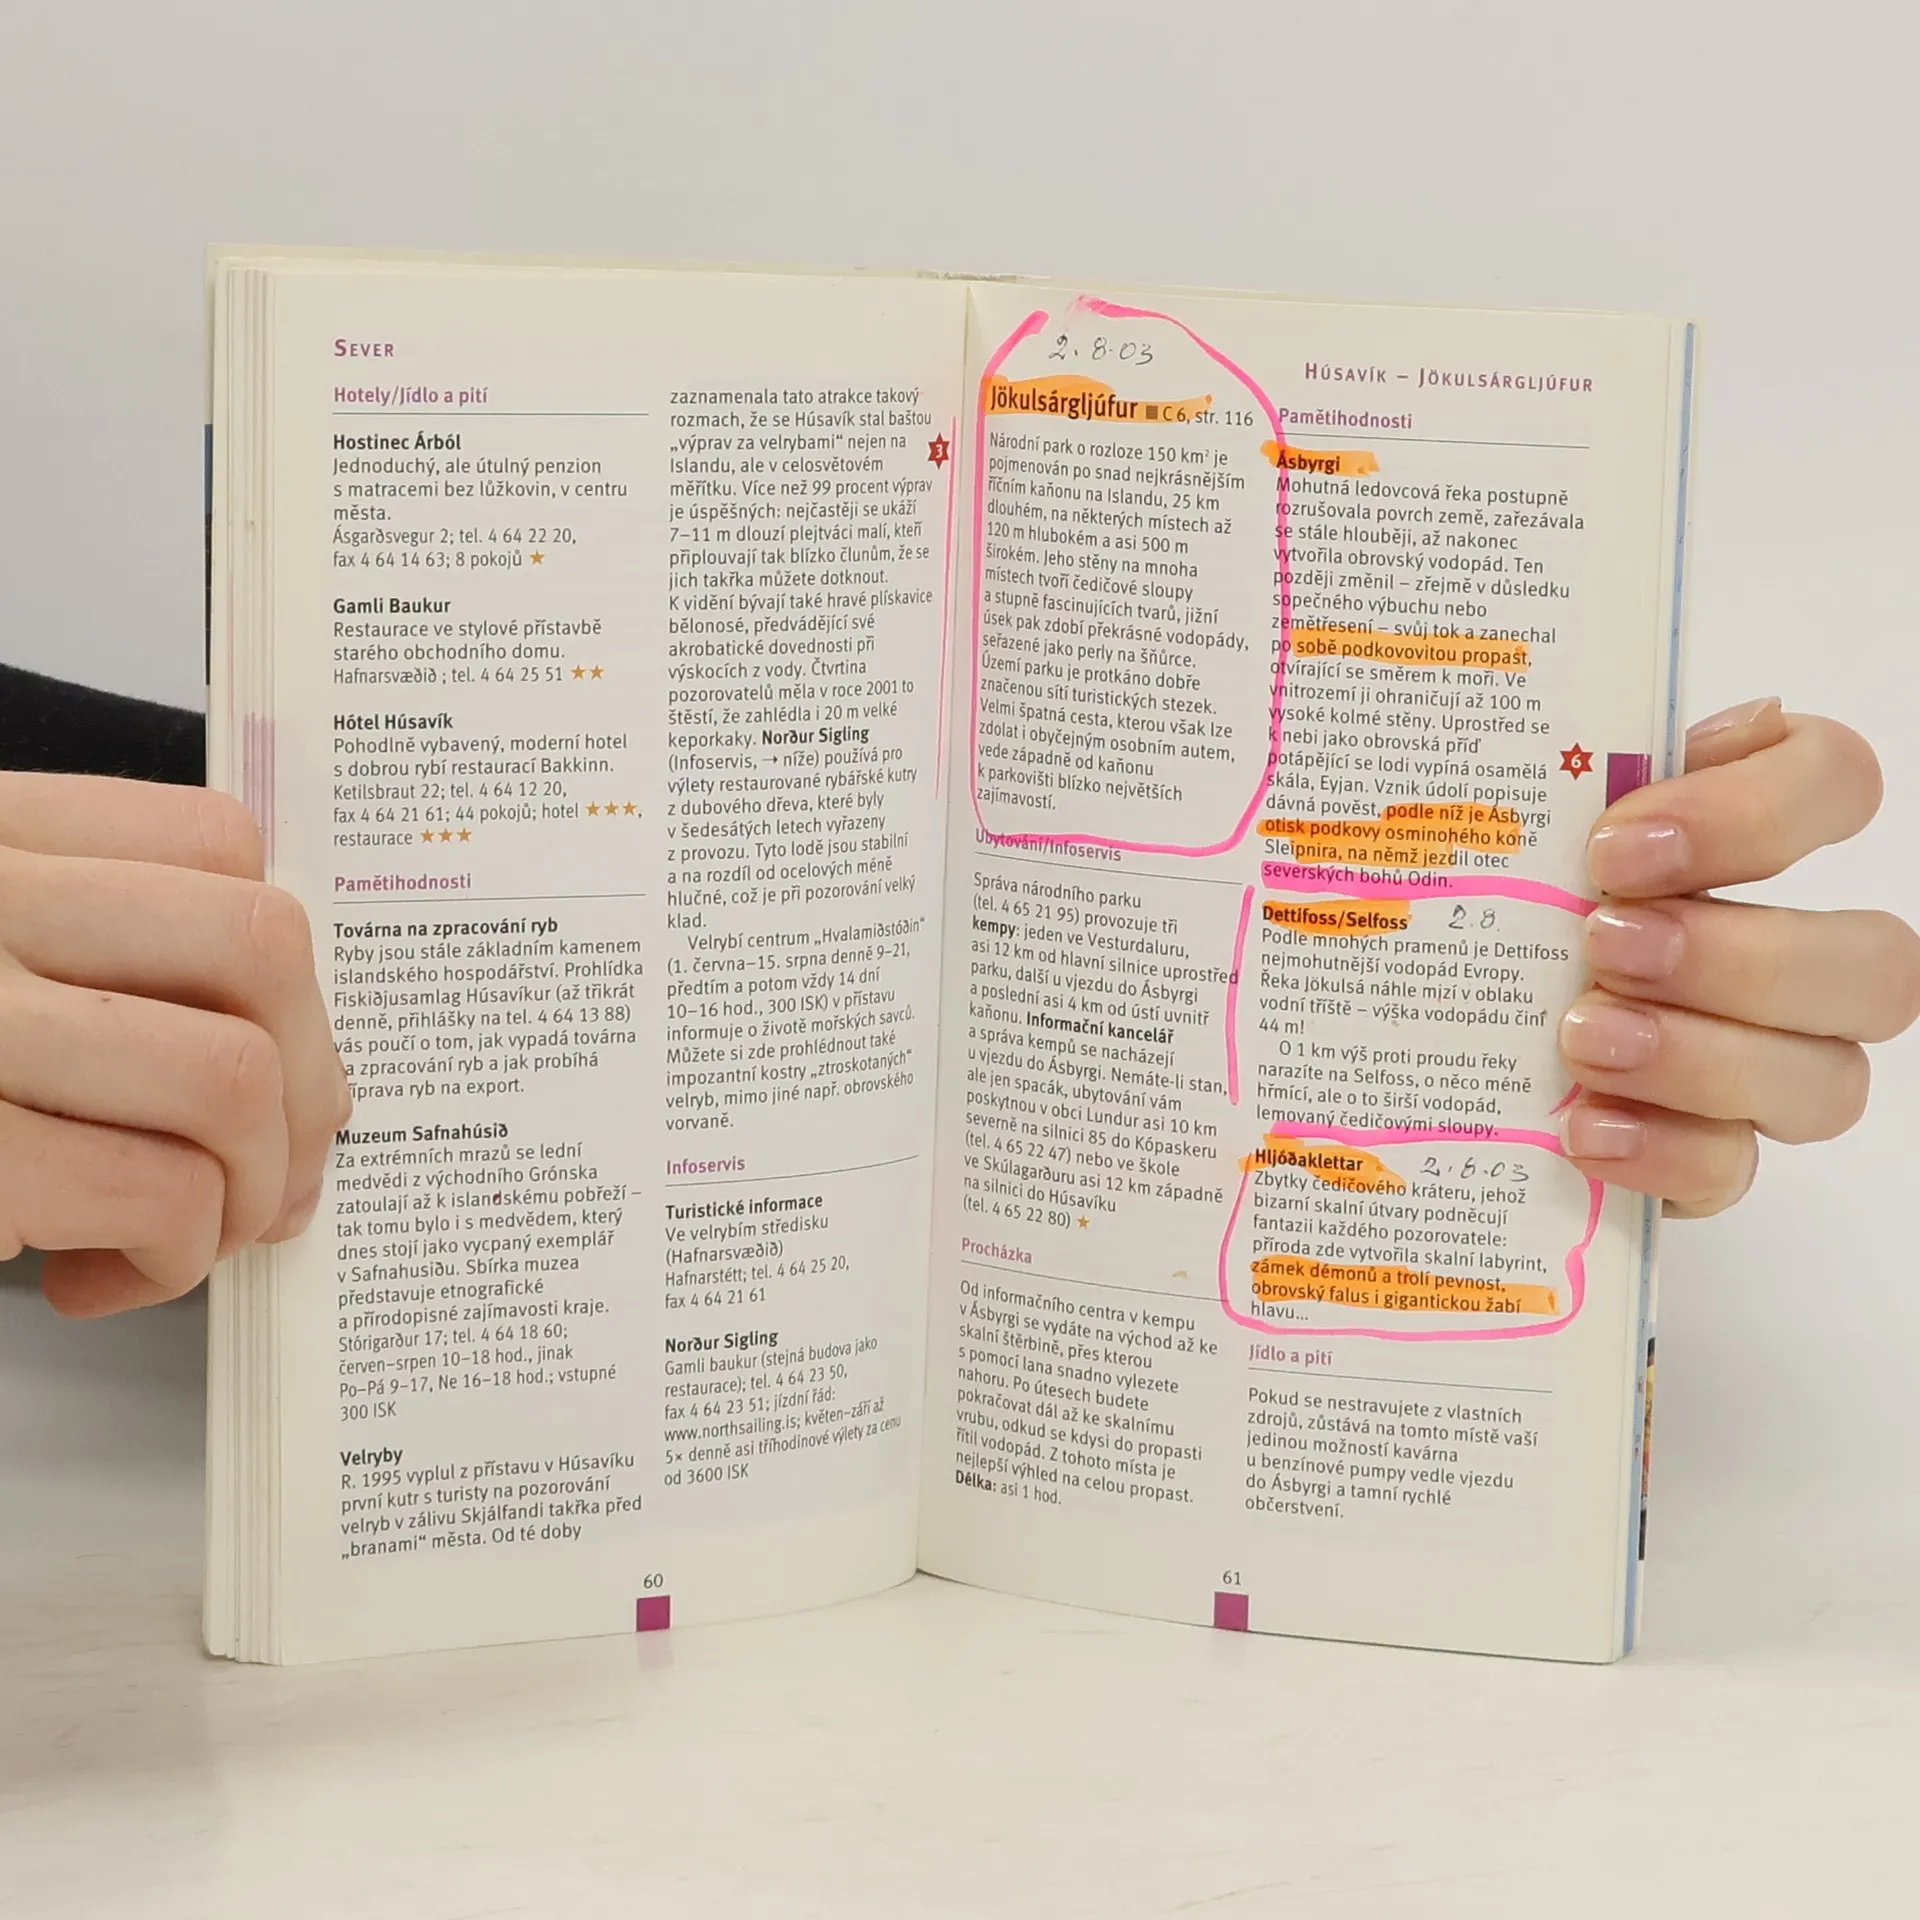 SEVER
Hotely/Jídlo a pití
Hostinec Árból
Jednoduchý, ale útulný penzion
s matracemi bez lůžkovin, v centru
města.
Ásgarðsvegur 2; tel. 4 64 22 20,
fax 4 64 14 63; 8 pokojů ★
Gamli Baukur
Restaurace ve stylové přístavbě
starého obchodního domu.
Hafnarsvæðið ; tel. 4 64 25 51 ★★
Hótel Húsavík
Pohodlně vybavený, moderní hotel
s dobrou rybí restaurací Bakkinn.
Ketilsbraut 22; tel. 4 64 12 20,
fax 4 64 21 61; 44 pokojů; hotel ★★★,
restaurace ★★★
Pamětihodnosti
Továrna na zpracování ryb
Ryby jsou stále základním kamenem
islandského hospodářství. Prohlídka
Fiskiðjusamlag Húsavíkur (až třikrát
denně, přihlášky na tel. 4 64 13 88)
vás poučí o tom, jak vypadá továrna
a zpracování ryb a jak probíhá
říprava ryb na export.
Muzeum Safnahúsið
Za extrémních mrazů se lední
medvědi z východního Grónska
zatoulají až k islandskému pobřeží –
tak tomu bylo i s medvědem, který
dnes stojí jako vycpaný exemplář
v Safnahusiðu. Sbírka muzea
představuje etnografické
a přírodopisné zajímavosti kraje.
Stórigarður 17; tel. 4 64 18 60;
červen–srpen 10–18 hod., jinak
Po–Pá 9–17, Ne 16–18 hod.; vstupné
300 ISK
Velryby
R. 1995 vyplul z přístavu v Húsavíku
první kutr s turisty na pozorování
velryb v zálivu Skjálfandi takřka před
„branami“ města. Od té doby
zaznamenala tato atrakce takový
rozmach, že se Húsavík stal baštou
„výprav za velrybami“ nejen na
Islandu, ale v celosvětovém
měřítku. Více než 99 procent výprav
je úspěšných: nejčastěji se ukáží
7–11 m dlouzí plejtváci malí, kteří
připlouvají tak blízko člunům, že se
jich takřka můžete dotknout.
K vidění bývají také hravé plískavice
bělonosé, předvádějící své
akrobatické dovednosti při
výskocích z vody. Čtvrtina
pozorovatelů měla v roce 2001 to
štěstí, že zahlédla i 20 m velké
keporkaky. Norður Sigling
(Infoservis, → níže) používá pro
výlety restaurované rybářské kutry
z dubového dřeva, které byly
v šedesátých letech vyřazeny
z provozu. Tyto lodě jsou stabilní
a na rozdíl od ocelových méně
hlučné, což je při pozorování velký
klad.
Velrybí centrum „Hvalamiðstóðin“
(1. června–15. srpna denně 9–21,
předtím a potom vždy 14 dní
10–16 hod., 300 ISK) v přístavu
informuje o životě mořských savců.
Můžete si zde prohlédnout také
impozantní kostry „ztroskotaných“
velryb, mimo jiné např. obrovského
vorvaně.
3
Infoservis
Turistické informace
Ve velrybím středisku
(Hafnarsvæðið)
Hafnarstétt; tel. 4 64 25 20,
fax 4 64 21 61
Norður Sigling
Gamli baukur (stejná budova jako
restaurace); tel. 4 64 23 50,
fax 4 64 23 51; jízdní řád:
www.northsailing.is; květen–září až
5× denně asi tříhodinové výlety za cenu
od 3600 ISK
60
HÚSAVÍK – JÖKULSÁRGLJÚFUR
2. 8. 03
Jökulsárgljúfur ■ C 6, str. 116
Národní park o rozloze 150 km² je
pojmenován po snad nejkrásnějším
říčním kaňonu na Islandu, 25 km
dlouhém, na některých místech až
120 m hlubokém a asi 500 m
širokém. Jeho stěny na mnoha
místech tvoří čedičové sloupy
a stupně fascinujících tvarů, jižní
úsek pak zdobí překrásné vodopády,
seřazené jako perly na šňůrce.
Území parku je protkáno dobře
značenou sítí turistických stezek.
Velmi špatná cesta, kterou však lze
zdolat i obyčejným osobním autem,
vede západně od kaňonu
k parkovišti blízko největších
zajímavostí.
Ubytování/Infoservis
Správa národního parku
(tel. 4 65 21 95) provozuje tři
kempy: jeden ve Vesturdaluru,
asi 12 km od hlavní silnice uprostřed
parku, další u vjezdu do Ásbyrgi
a poslední asi 4 km od ústí uvnitř
kaňonu. Informační kancelář
a správa kempů se nacházejí
u vjezdu do Ásbyrgi. Nemáte-li stan,
ale jen spacák, ubytování vám
poskytnou v obci Lundur asi 10 km
severně na silnici 85 do Kópaskeru
(tel. 4 65 22 47) nebo ve škole
ve Skúlagarðuru asi 12 km západně
na silnici do Húsavíku
(tel. 4 65 22 80) ★
Procházka
Od informačního centra v kempu
v Ásbyrgi se vydáte na východ až ke
skalní štěrbině, přes kterou
s pomocí lana snadno vylezete
nahoru. Po útesech budete
pokračovat dál až ke skalnímu
vrubu, odkud se kdysi do propasti
řítil vodopád. Z tohoto místa je
nejlepší výhled na celou propast.
Délka: asi 1 hod.
Pamětihodnosti
Ásbyrgi
Mohutná ledovcová řeka postupně
rozrušovala povrch země, zařezávala
se stále hlouběji, až nakonec
vytvořila obrovský vodopád. Ten
později změnil – zřejmě v důsledku
sopečného výbuchu nebo
zemětřesení – svůj tok a zanechal
po sobě podkovovitou propast,
otvírající se směrem k moři. Ve
vnitrozemí ji ohraničují až 100 m
vysoké kolmé stěny. Uprostřed se
k nebi jako obrovská příď
potápějící se lodi vypíná osamělá
skála, Eyjan. Vznik údolí popisuje
dávná pověst, podle níž je Ásbyrgi
otisk podkovy osminohého koně
Sleipnira, na němž jezdil otec
severských bohů Odin.
6
Dettifoss/Selfoss 2. 8.
Podle mnohých pramenů je Dettifoss
nejmohutnější vodopád Evropy.
Řeka Jökulsá náhle mizí v oblaku
vodní tříště – výška vodopádu činí
44 m!
O 1 km výš proti proudu řeky
narazíte na Selfoss, o něco méně
hřmící, ale o to širší vodopád,
lemovaný čedičovými sloupy.
Hljóðaklettar 2. 8. 03
Zbytky čedičového kráteru, jehož
bizarní skalní útvary podněcují
fantazii každého pozorovatele:
příroda zde vytvořila skalní labyrint,
zámek démonů a trolí pevnost,
obrovský falus i gigantickou žabí
hlavu...
Jídlo a pití
Pokud se nestravujete z vlastních
zdrojů, zůstává na tomto místě vaší
jedinou možností kavárna
u benzínové pumpy vedle vjezdu
do Ásbyrgi a tamní rychlé
občerstvení.
61